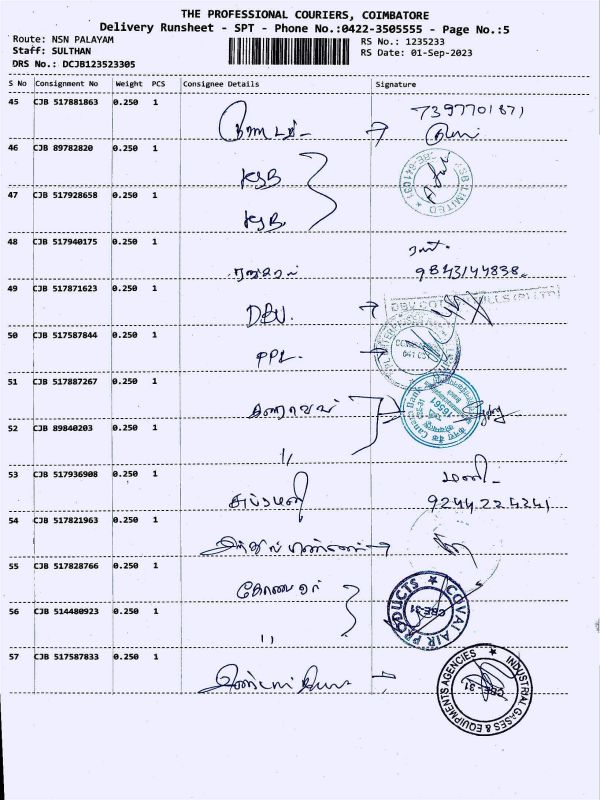 THE PROFESSIONAL COURIERS, COIMBATORE
Delivery Runsheet - SPT - Phone No.:0422-3505555 - Page No.:5
Route: NSN PALAYAM
Staff: SULTHAN
DRS No.: DCJB123523305
RS No.: 1235233
RS Date: 01-Sep-2023
S No Consignment No Weight PCS Consignee Details Signature
45 CJB 517881863 0.250 1 7397701871
46 CJB 89782820 0.250 1 KSB
47 CJB 517928658 0.250 1 KSB
48 CJB 517940175 0.250 1 9843144838
49 CJB 517871623 0.250 1 DBV.
50 CJB 517587844 0.250 1 PPL.
51 CJB 517887267 0.250 1
52 CJB 89840203 0.250 1 "
53 CJB 517936908 0.250 1 மணி 9244224241
54 CJB 517821963 0.250 1
55 CJB 517828766 0.250 1 COVAI AIR PRODUCTS CBE-31
56 CJB 514480923 0.250 1 "
57 CJB 517587833 0.250 1 INDUSTRIAL GASES & EQUIPMENTS AGENCIES CBE-31